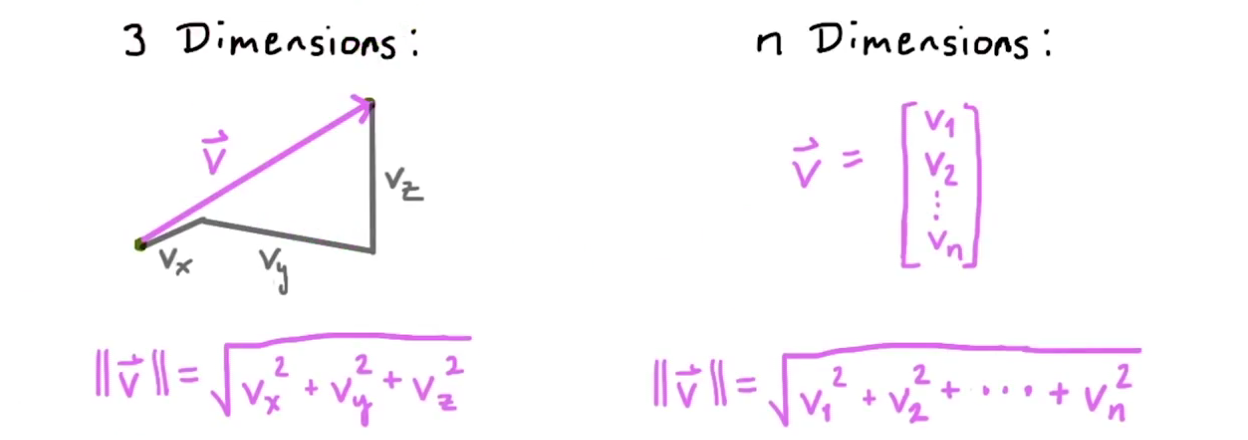 3 Dimensions:
v⃗
v_z
v_x
v_y
||v⃗|| = √(v_x² + v_y² + v_z²)
n Dimensions:
v⃗ = [v₁
v₂
⋮
vₙ]
||v⃗|| = √(v₁² + v₂² + ··· + vₙ²)